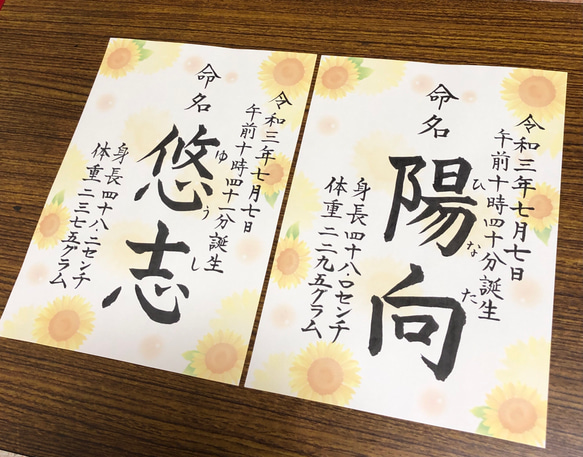 令和三年七月七日
午前十時四十分誕生
命名
陽向
ひなた
身長四十八・〇センチ
体重二二九五グラム
令和三年七月七日
午前十時四十一分誕生
命名
悠志
ゆうし
身長四十八・二センチ
体重二三七五グラム